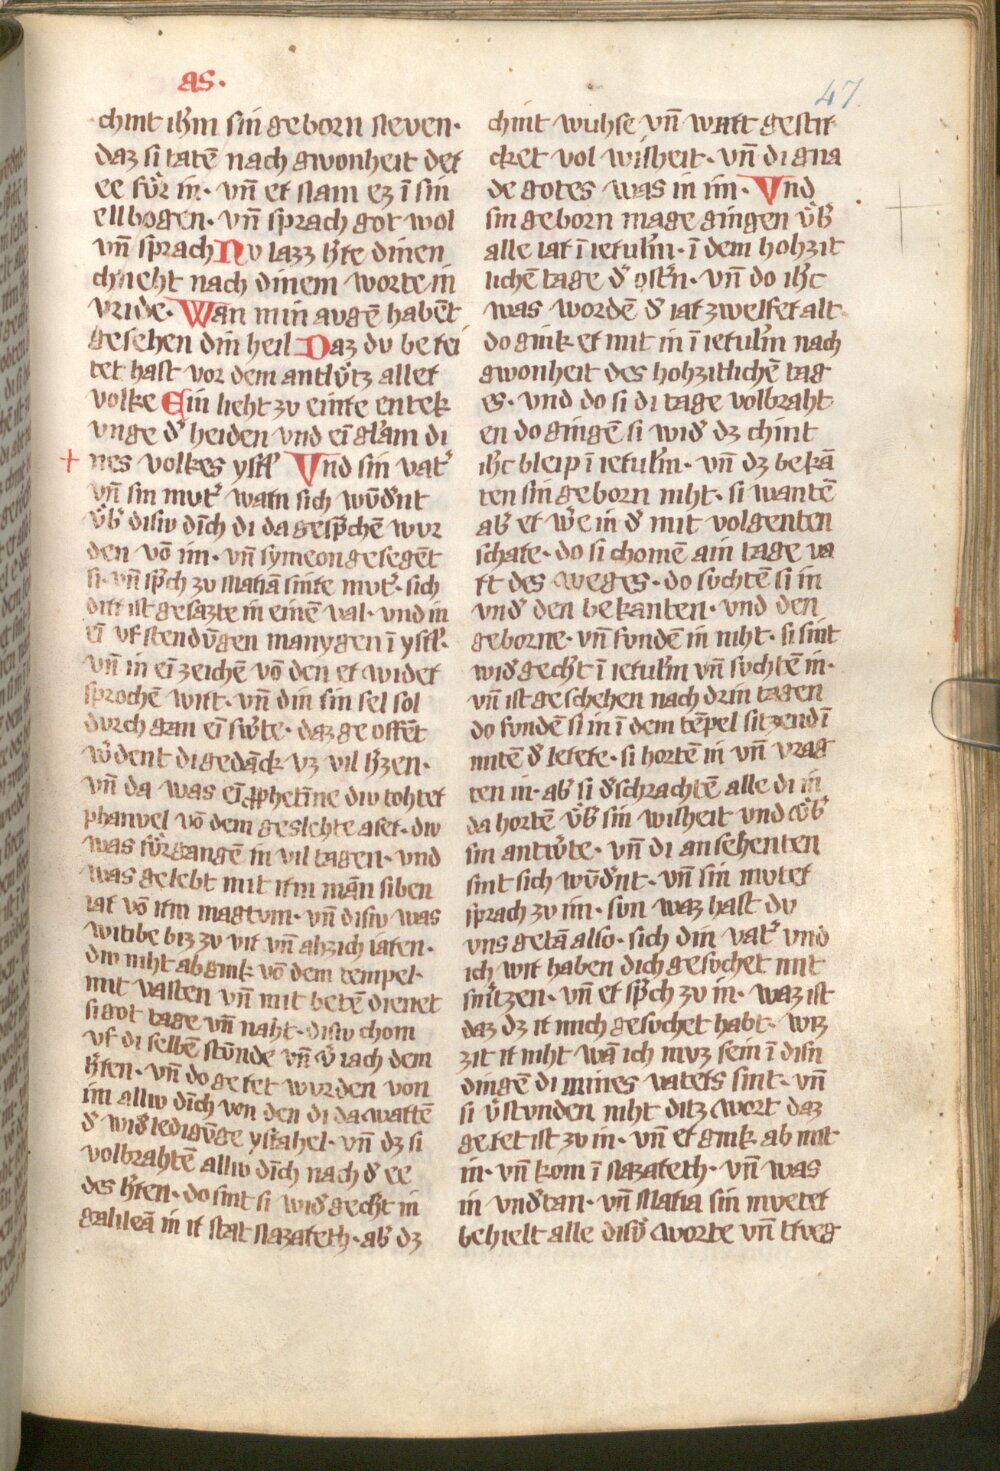 as.
47
chint ih̄m sin geborn neven·
daz si tatē nach gwonheit der
ee fůr in· vn̄ er nam ez ī sin
ellbogen· vn̄ sprach got wol
vn̄ sprach Nv lazz h̓re dinen
chneht nach dinem worte in
vride· Wan min avgē habēt
gesehen din heil Daz dv berei
tet hast vor dem antlv̓tz aller
volke Ein lieht zv einre entek
vnge d̓ heiden vnd eī glam di
nes volkes ysrl̓ Vnd sin vat̓
vn̄ sin mvt̓ warn sich wūd̓nt
v̓b̓ disiv dīch di da gesp̓chē wur
den vō im· vn̄ symeon gesegēt
si· vn̄ sp̓ch zv Mariā sinre mvt̓· sich
dirr ist gesazte in einē val· vnd in
eī vfstendv̄gen manygen ī ysrl̓·
vn̄ in eī zeichē vō den er wider
sprochē wirt· vn̄ din sin sel sol
durch gan eī sw̓te· daz ge offēt
w̓dent di gedāck vz vil h̓zen·
vn̄ da was eī ꝓphetīne div tohter
phanvel vō dem geslehte aser· div
was fůrgangē in vil tagen· vnd
was gelebt mit irm mān siben
iar vō irm magtvm· vn̄ disiv was
witibe biz zv vir vn̄ ahzich iaren·
div niht abgink vō dem tempel·
mit vasten vn̄ mit betē dienet
si got tage vn̄ naht· disiv chom
vf di selbē stūnde vn̄ v̓iach dem
h̓ren· vn̄ do geret wurden von
im alliv dīch von den di da wartē
d̓ wid̓ledigv̄ge ysrahel· vn̄ dz si
volbrahtē alliv dīch nach d̓ ee
des h̓ren· do sint si wid̓gech̓t in
galileā in ir stat Nazareth· ab̓ dz
chint wuhse vn̄ wart gestir
cket vol wisheit· vn̄ di gna
de gotes was in im· Vnd
sin geborn mage gingen v̓b̓
alle iar ī ierusl̓m· ī dem hohzit
lichē tage d̓ ost̓n· vn̄ do ih̄c
was wordē d̓ iar zwelfer alt·
do gink er mit in ī ierusl̓m nach
gwonheit des hohzitlichē tag
es· vnd do si di tage volbraht
en do gingē si wid̓ dz chint
ih̄c bleip ī ierusl̓m· vn̄ dz bekā
ten sin geborn niht· si wantē
ab̓ er w̓e in d̓ mit volgenten
schare· do si chomē ain tage va
rt des weges· do suchtē si in
vnd̓ den bekanten· vnd den
geborne· vn̄ fundē in niht· si sint
wid̓gech̓t ī ierusl̓m vn̄ suchtē in·
vn̄ ist geschehen nach drin tagen
do fundē si in ī dem tēpel sitzend ī
mitē d̓ lerere· si hortē in vn̄ vrag
ten in· ab̓ si d̓schrachtē alle di in
da hortē v̓b̓ sin wisheit vnd v̓b̓
sin antw̓te· vn̄ di ansehenten
sint sich wūd̓nt· vn̄ sin mvter
sprach zv im· svn waz hast dv
vns getā also· sich din vat̓ vnd
ich wir haben dich gesvchet mit
sm̓tzen· vn̄ er sp̓ch zv in· waz ist
daz dz ir mich gesvchet habt· wiz
zit ir niht wā ich mvz sein ī disn
dingē di mines vaters sint· vn̄
si v̓stvnden niht ditz wort daz
geret ist zv in· vn̄ er gink ab mit
in· vn̄ kom ī Nazareth· vn̄ was
in vnd̓tan· vn̄ Maria sin mveter
behielt alle disv̓ worte vn̄ trvg